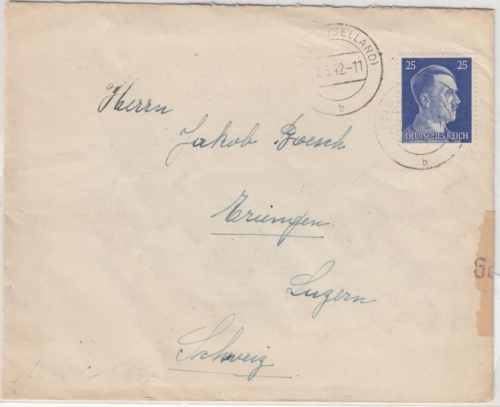 SELLAND)
.42.-11
b
25 25
DEUTSCHES REICH
b
Herrn
Jakob Boesch
Triengen
Luzern
Schweiz
Ge